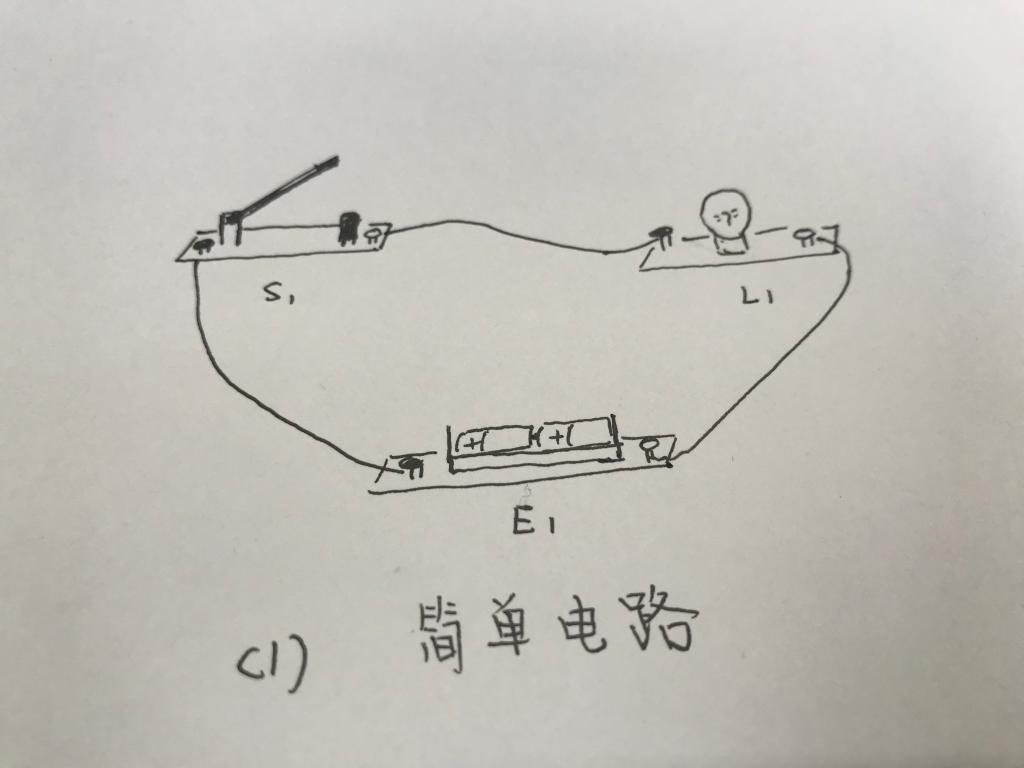 S1
L1
+ +
E1
(1) 简单电路